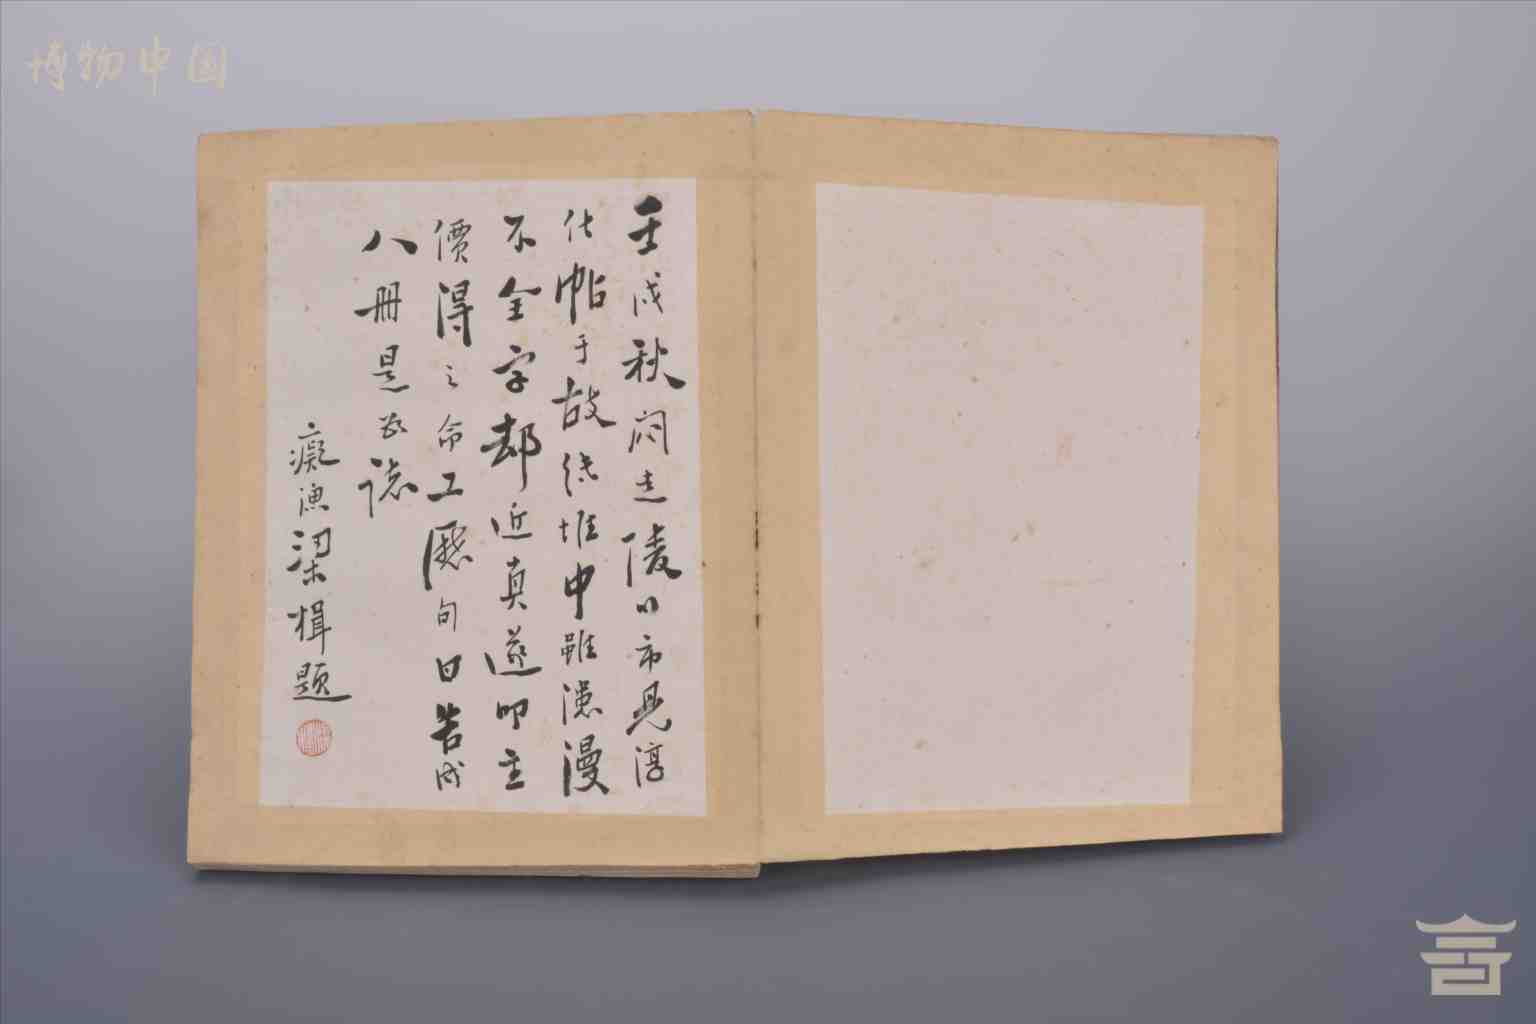 博物中国
壬戌秋走陵口市見淳
化帖于故纸堆中雖漶漫
不全字却近真遂叩主
價得之命工旬日告成
八冊是為誌
癡漁梁楫題